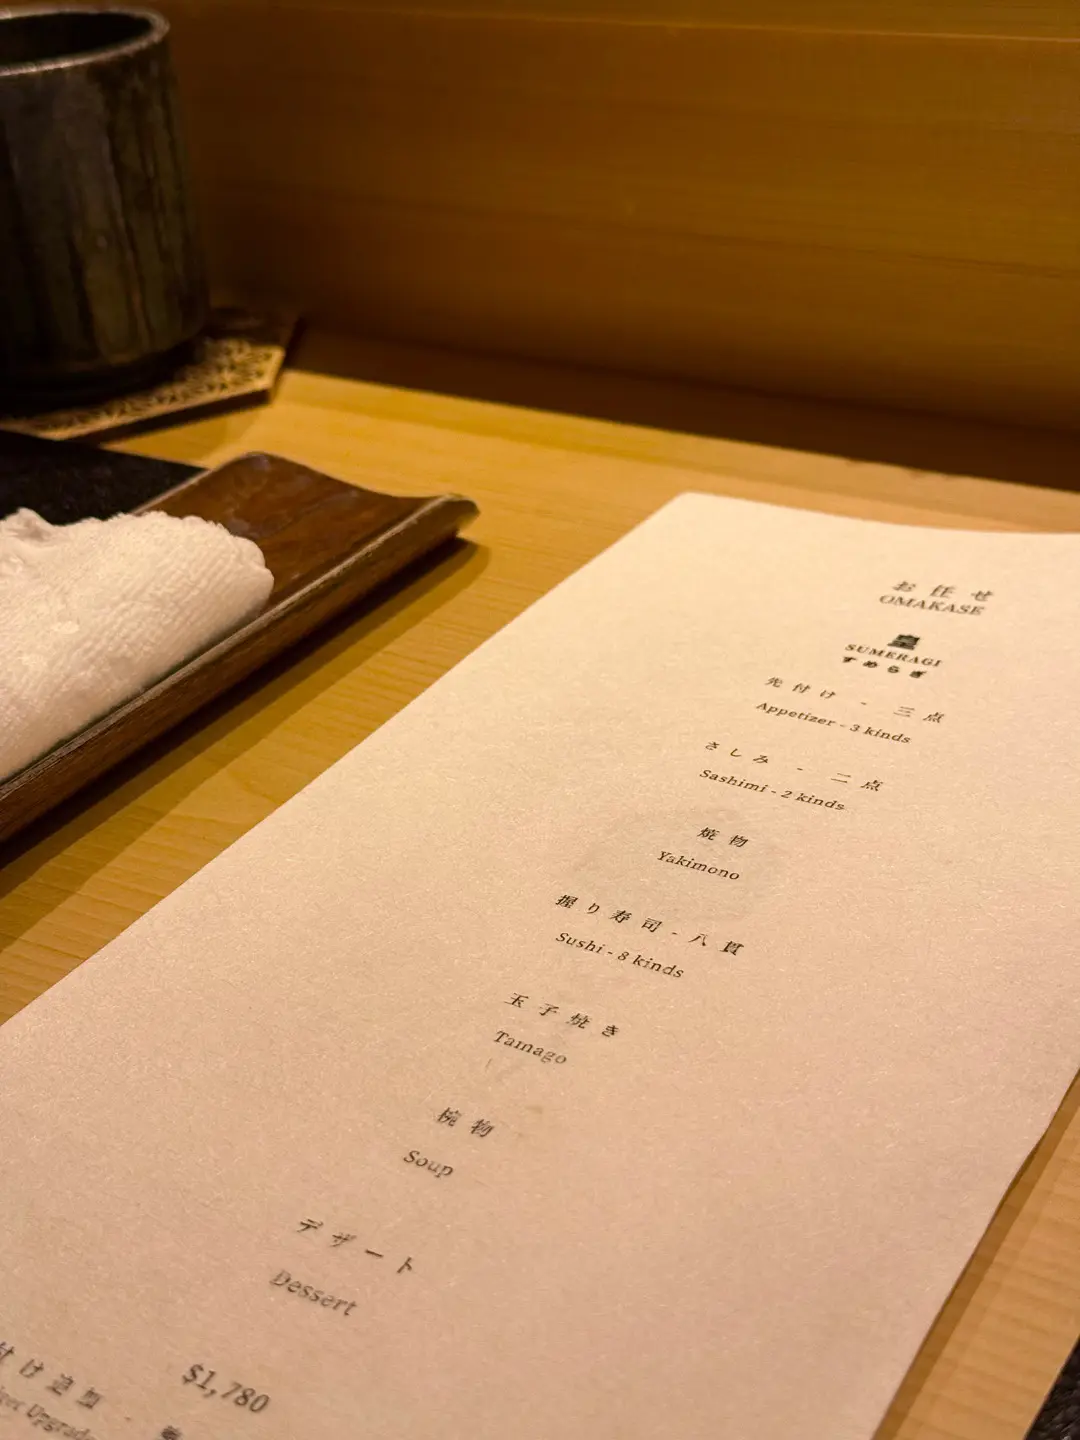 お任せ
OMAKASE
皇
SUMERAGI
すめらぎ
先付け - 三点
Appetizer - 3 kinds
さしみ - 二点
Sashimi - 2 kinds
焼物
Yakimono
握り寿司 - 八貫
Sushi - 8 kinds
玉子焼き
Tamago
椀物
Soup
デザート
Dessert
$1,780
付け追加 -
Upgrade